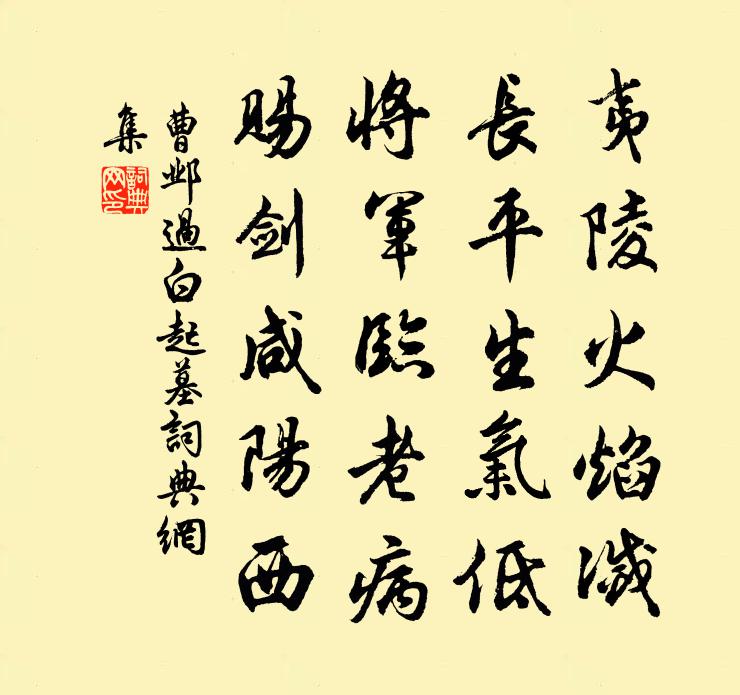 夷陵火焰滅
長平生氣低
將軍臨老病
賜劍咸陽西
曹邺過白起墓詞典網
集
詞典
网印